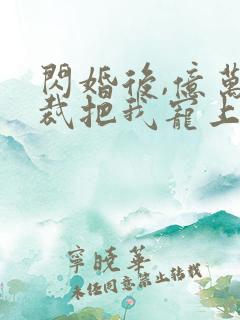 閃婚後,億萬
裁把我寵上
寧曉華
未經同意禁止轉載